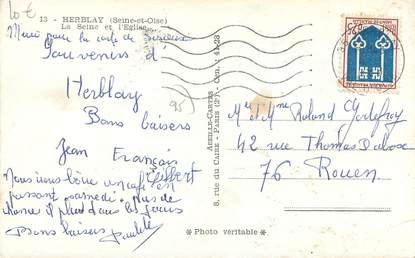 10 €
13 - HERBLAY (Seine-et-Oise)
La Seine et l'Eglise
Merci pour la carte de
Souvenirs d'
Herblay
Bons baisers
Jean François
(95)
ABEILLE-CARTES
8, rue du CAIRE - PARIS (2e) - Cen. : 41-28
Mr et Mme Roland Godefroy
42 rue Thomas Dubosc
76 Rouen
Nous irons boire un café en
passant samedi. plus de
chance il pleut tous les jours
Bons baisers
* Photo véritable *